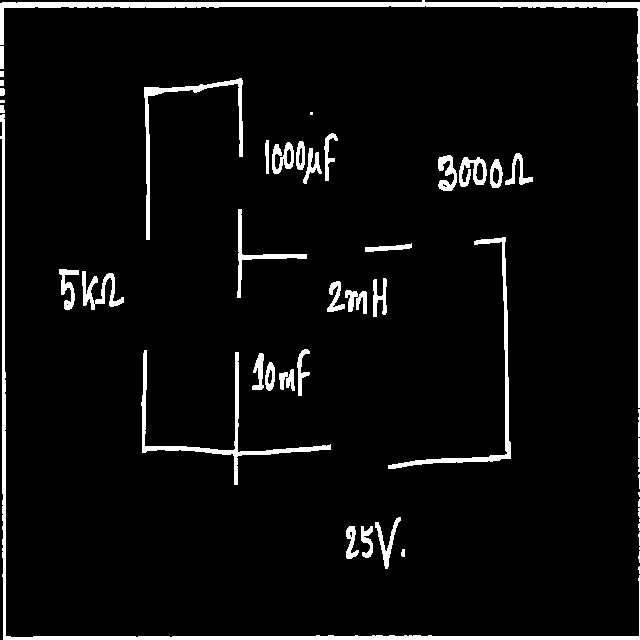 1000μF
3000Ω
5kΩ
2mH
10mF
25V.